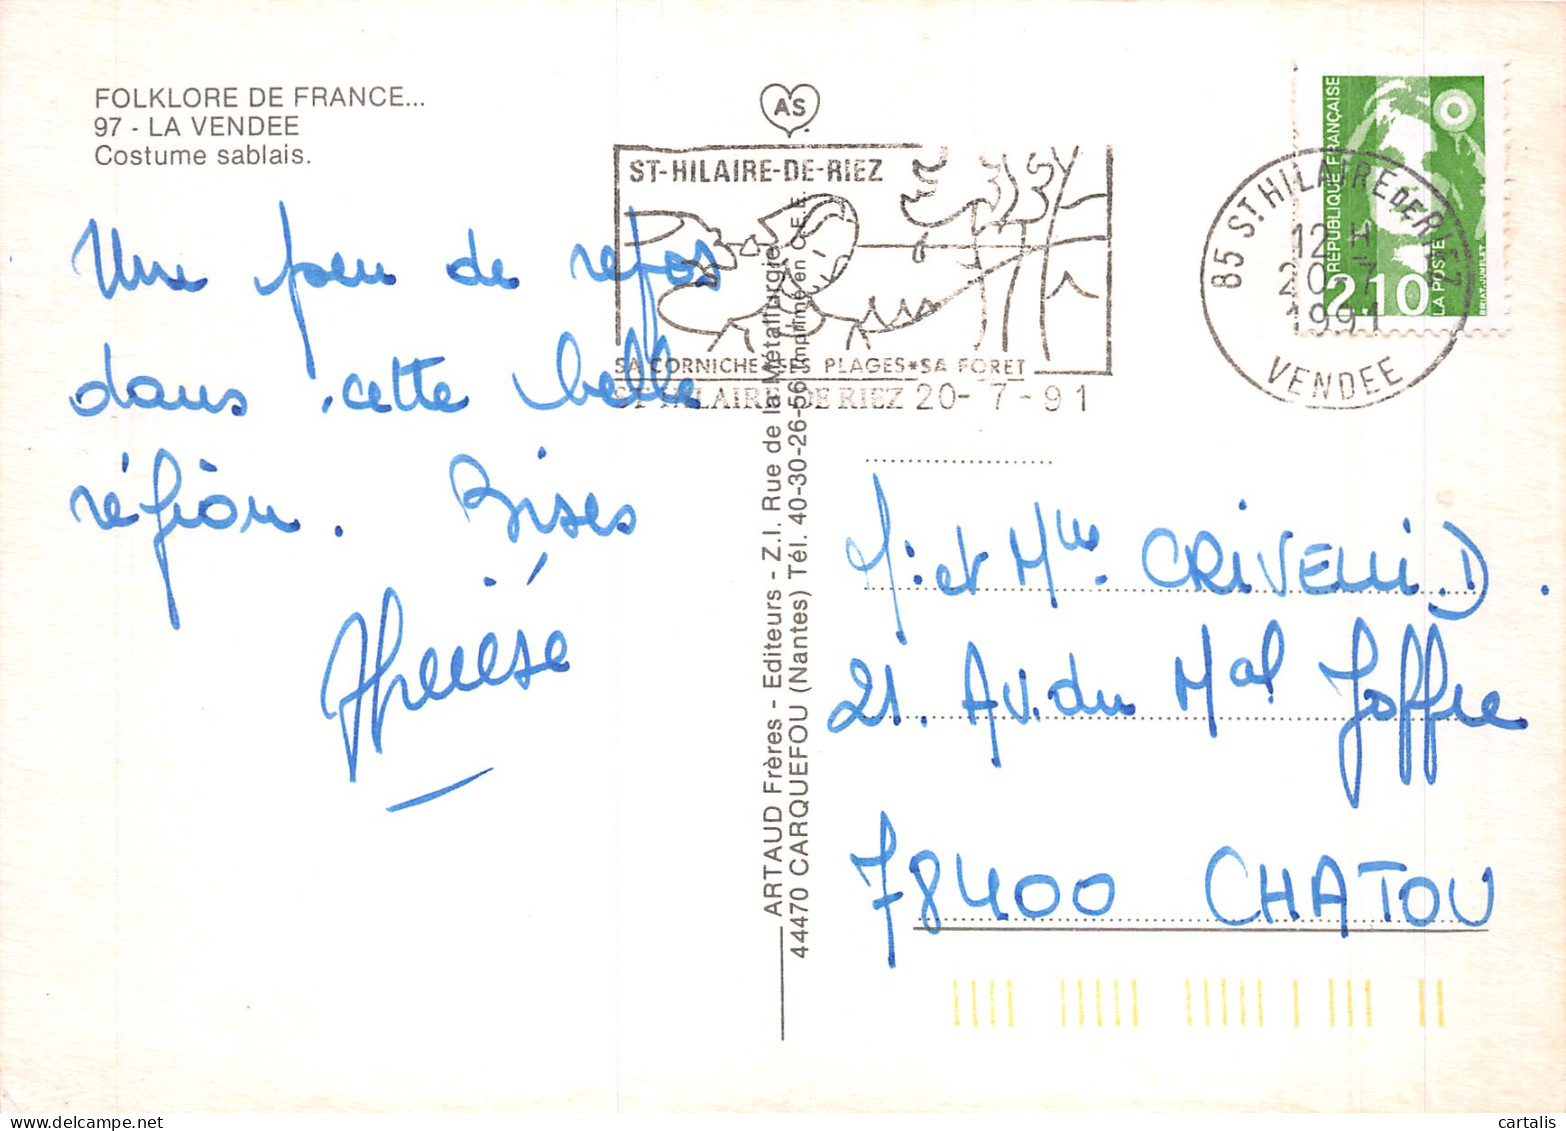 FOLKLORE DE FRANCE...
97 - LA VENDEE
Costume sablais.
Un peu de repos
dans cette belle
région. Bises
Thérèse
AS
ST-HILAIRE-DE-RIEZ
SA CORNICHE SES PLAGES*SA FORET
ST HILAIRE DE RIEZ 20-7-91
85 ST HILAIRE DE RIEZ
12 H
20 7
1991
VENDEE
REPUBLIQUE FRANÇAISE
2,10
LA POSTE
BRIAT-JUMELET
ARTAUD Frères - Editeurs - Z.I. Rue de la Métallurgie
44470 CARQUEFOU (Nantes) Tél. 40-30-26-56 Imprimé en C.E.E.
M. et Mlle. CRIVELLI. D.
21. Av. du Mal Joffre
78400 CHATOU
cartalis